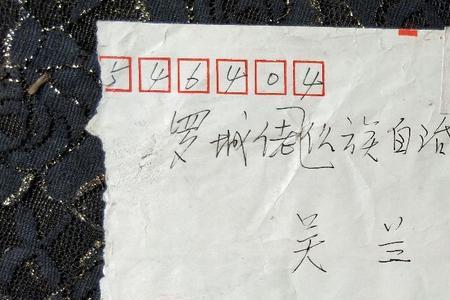 546404
罗城佬仫族自治
吴兰